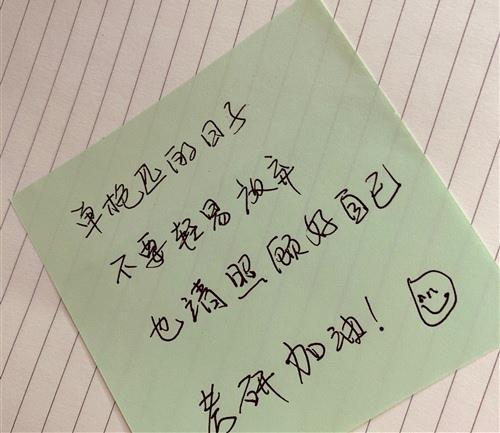 单枪匹的日子
不要轻易放弃
也请照顾好自己
考研加油!